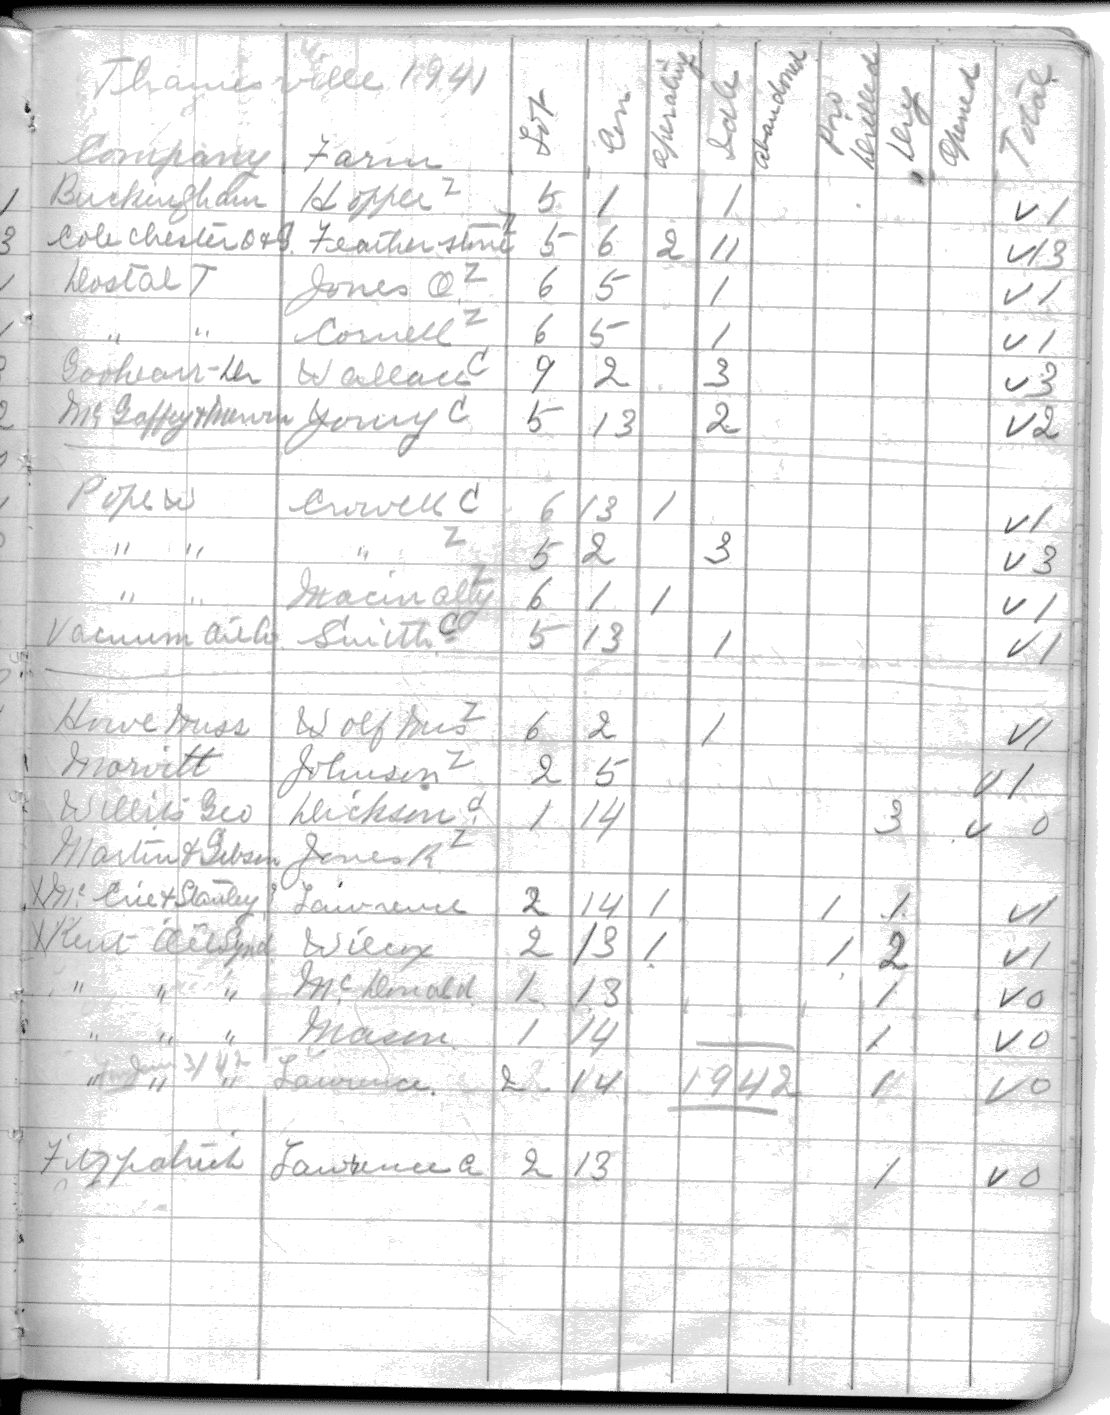 Thamesville 1941
Company Farm Lot Con Operating Idle Abandond Pro Drilled Dry Opened Total
1 Buckingham Hopper Z 5 1 1 √1
3 Colechester O&G. Featherstone Z 5 6 2 11 √13
1 Dostal T Jones O. Z 6 5 1 √1
1 " " Cornell Z 6 5 1 √1
Wallace C 9 2 3 √3
2 McGaffey & Munro Youny C 5 13 2 √2
Pope W Crowell C 6 13 1 √1
" " " Z 5 2 3 √3
" " Z 6 1 1 √1
Vacuum Oil Co Smith C 5 13 1 √1
Howe Muss Wolf Mus Z 6 2 1 √1
Marvitt Johnson Z 2 5 √1
Willits Geo Dickson C 1 14 3 √ 0
Martin & Gibson Jones R Z
X Mc Crie & Stanley Lawrence 2 14 1 1 1 √1
X Kent Oil Synd. Wilcox 2 13 1 1 2 √1
" " " McDonald 1 13 1 √0
" " " Mason 1 14 1 √0
" " " Lawrence. 2 14 1942 1 √0
Fitzpatrick Lawrence C 2 13 1 √0